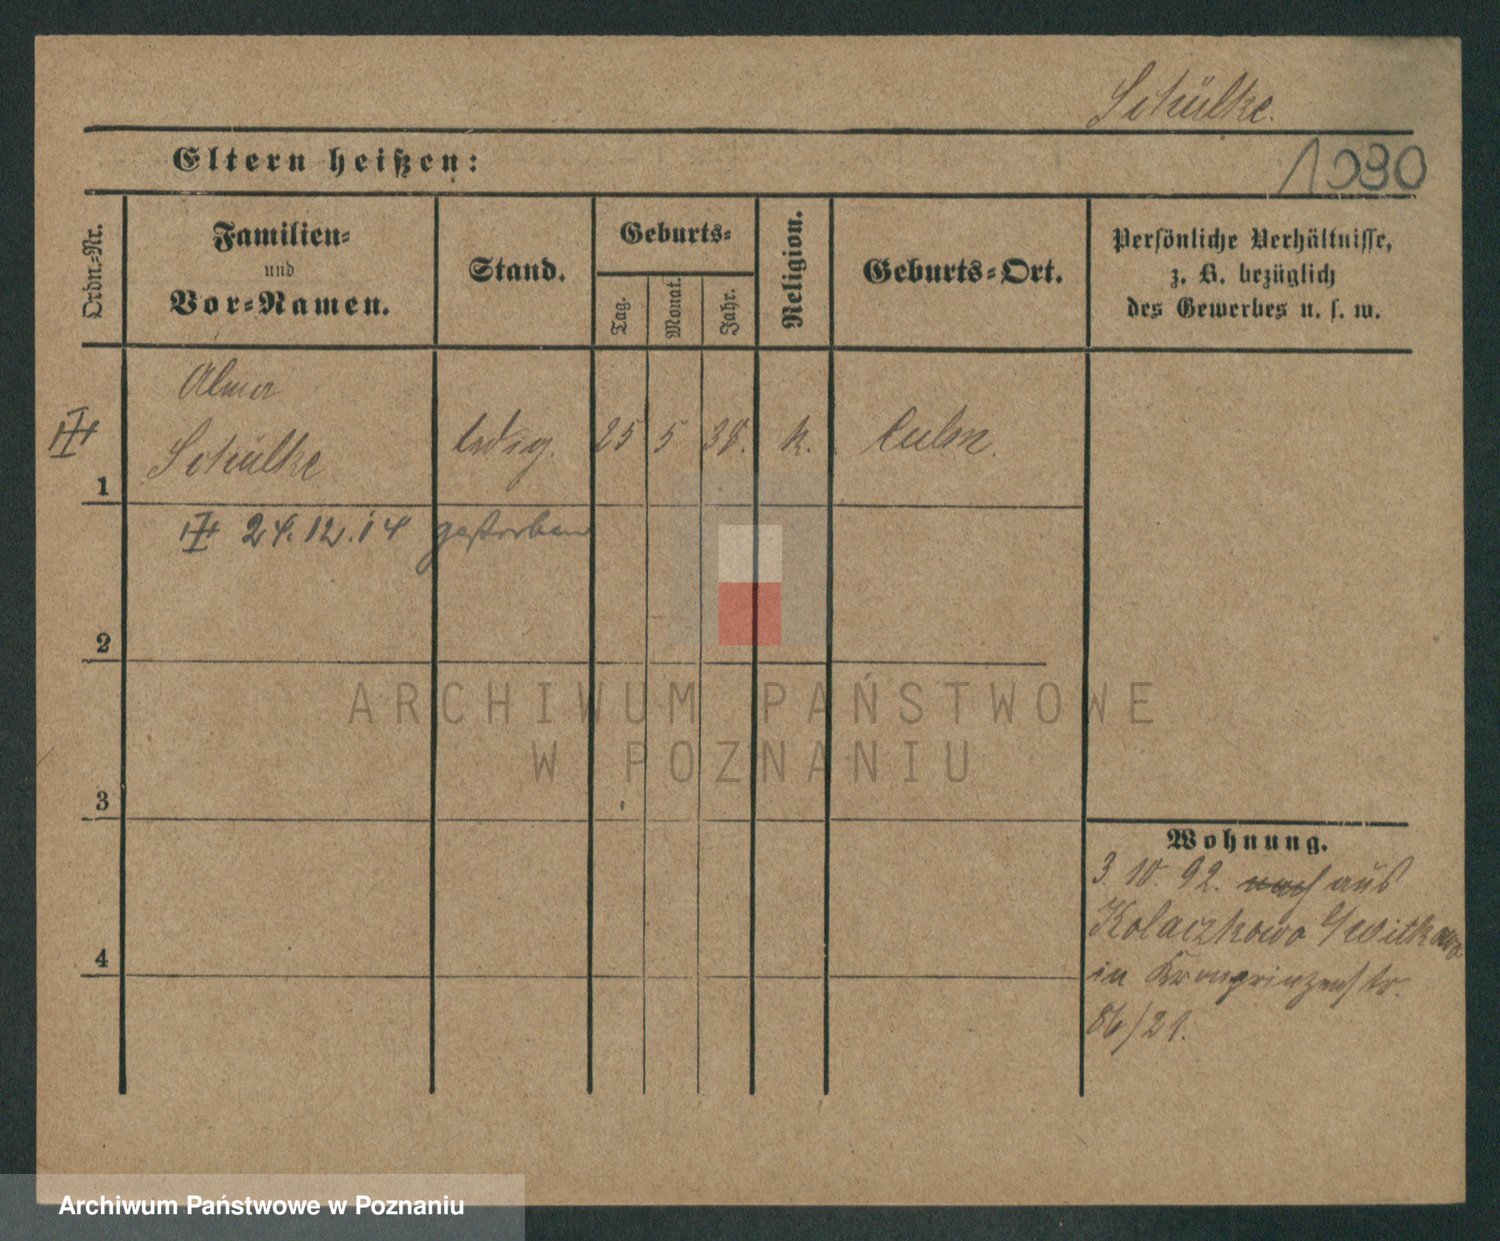 Schülke.
Eltern heißen:
1030
Ordn.-Nr.
Familien-
und
Vor-Namen.
Stand.
Geburts-
Tag.
Monat.
Jahr.
Religion.
Geburts-Ort.
Persönliche Verhältnisse,
z. B. bezüglich
des Gewerbes u. s. w.
Alma
Schülke
ledig.
25
5
38.
k.
Culm.
1
24.12.14 gestorben
2
ARCHIWUM PAŃSTWOWE
W POZNANIU
3
Wohnung.
3. 10. 92. nach aus
Kolaczkowo b/Witkowo
in Kronprinzenstr.
86/21.
4
Archiwum Państwowe w Poznaniu